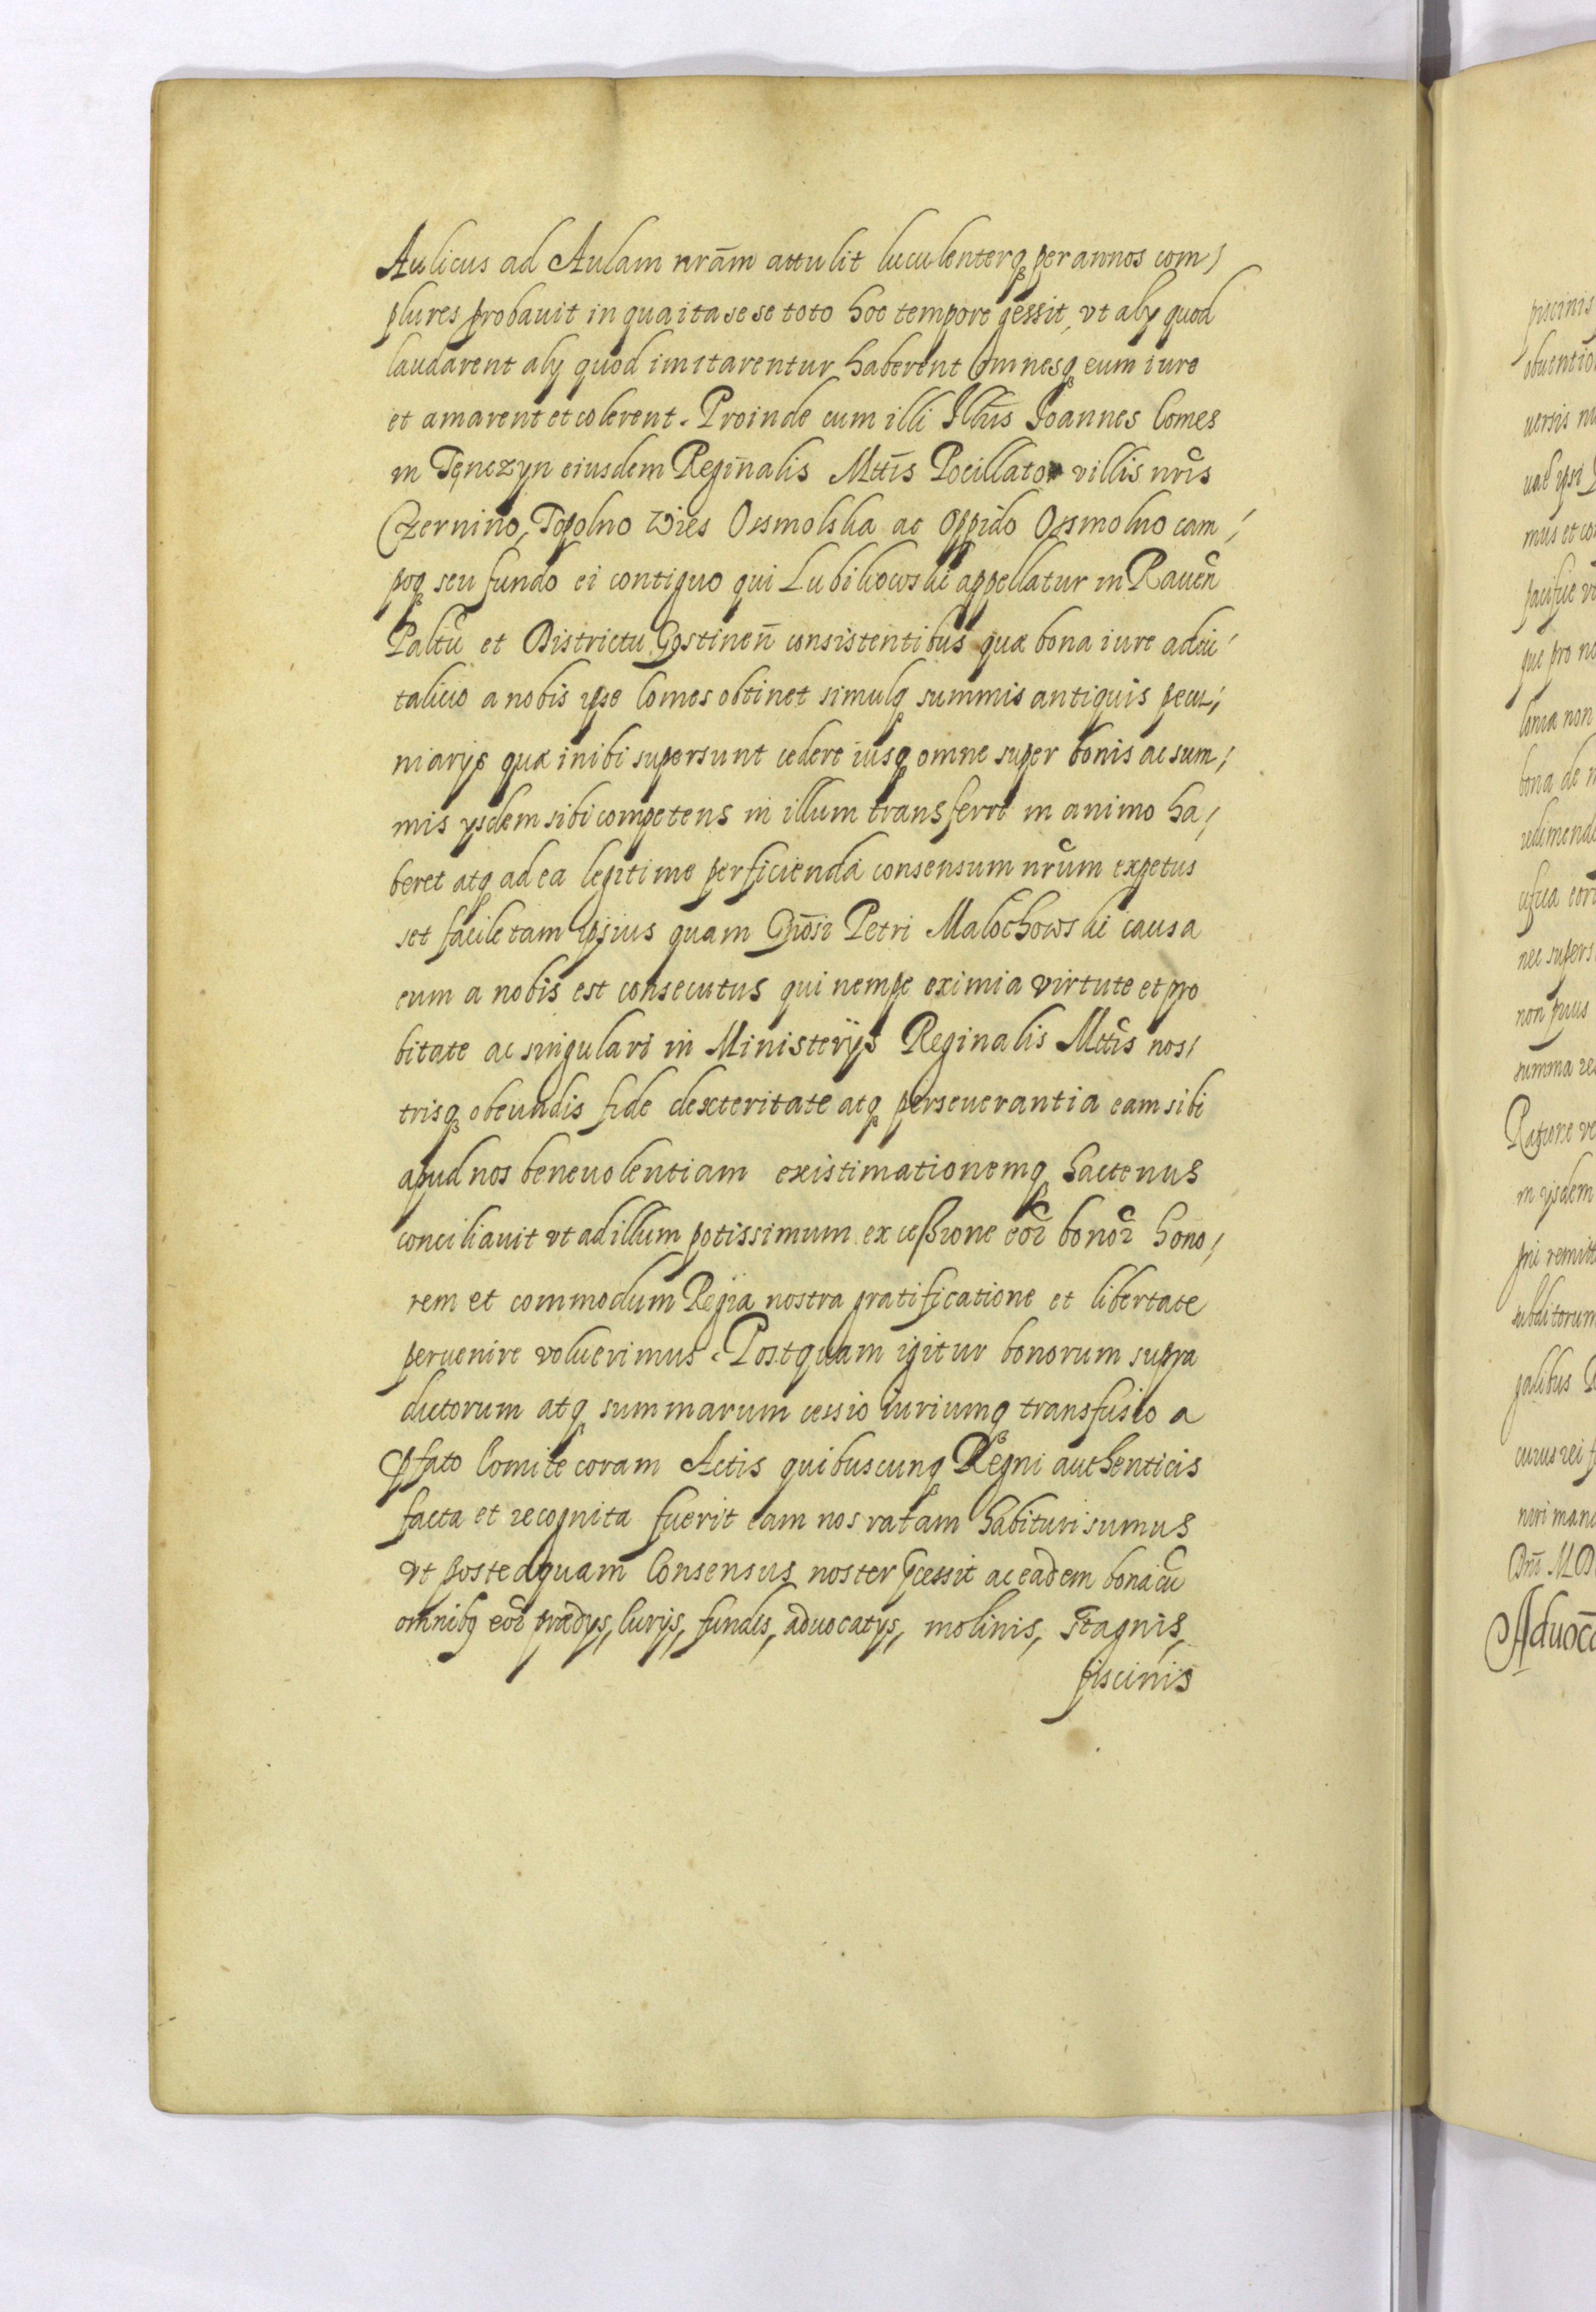 Aulicus ad Aulam nrãm attulit luculenterq per annos com/
plures probauit in qua ita sese toto hoc tempore gessit, vt aly quod
laudarent aly quod imitarentur haberent omnesq eum iure
et amarent et colerent. Proinde cum illi Illus̃ Joannes Comes
in Tęnczyn eiusdem Reginalis Mttis̃ Pocillator villis nris̃
Czernino, Topolno Wies Ossmolska ac Oppido Ossmolno cam/
poq seu fundo ei contiguo qui Lubikowski appellatur in Rauen̄
Paltu̅ et Districtu Gostinen̄ consistentibus quæ bona iure aduı/
talicio a nobis ipse Comes obtinet simulq summis antiquis pecu/
niarijs quæ inibi supersunt cedere iusq omne super bonis ac sum/
mis ysdem sibi competens in illum transferre in animo ha/
beret atq ad ea legitime perficienda consensum nrũm expetus
set facile tam ipsius quam Gn̄osi Petri Malochowski causa
eum a nobis est consecutus qui nempe eximia virtute et pro
bitate ac singulari in Ministerijs Reginalis Mttis̃ nos/
trisq obeundis fide dexteritate atq perseuerantia eam sibi
apud nos beneuolentiam existimationemq hactenus
conciliauit vt ad illum potissimum ex ceßione eor̃ bonor̃ hono/
rem et commodum Regia nostra gratificatione et libertate
peruenire voluerimus. Postquam igitur bonorum supra
dictorum atq summarum cessio iuriumq transfusio a
p̄fato Comite coram Actis quibuscunq Regni authenticis
facta et recognita fuerit eam nos ratam habituri sumus
vt posteaquam Consensus noster p̄cessit ac eadem bona cũ
omnibq eor̃ prædys, Curijs, fundis, aduocatys, molinis, stagnis,
piscinis